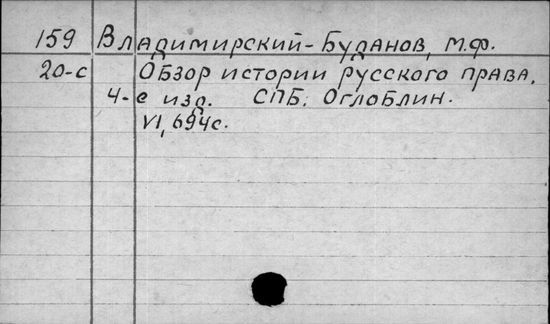 159 Владимирский-Буданов, М.Ф.
20-с Обзор истории русского права.
4-е изд. СПБ. Оглоблин.
VI, 694с.